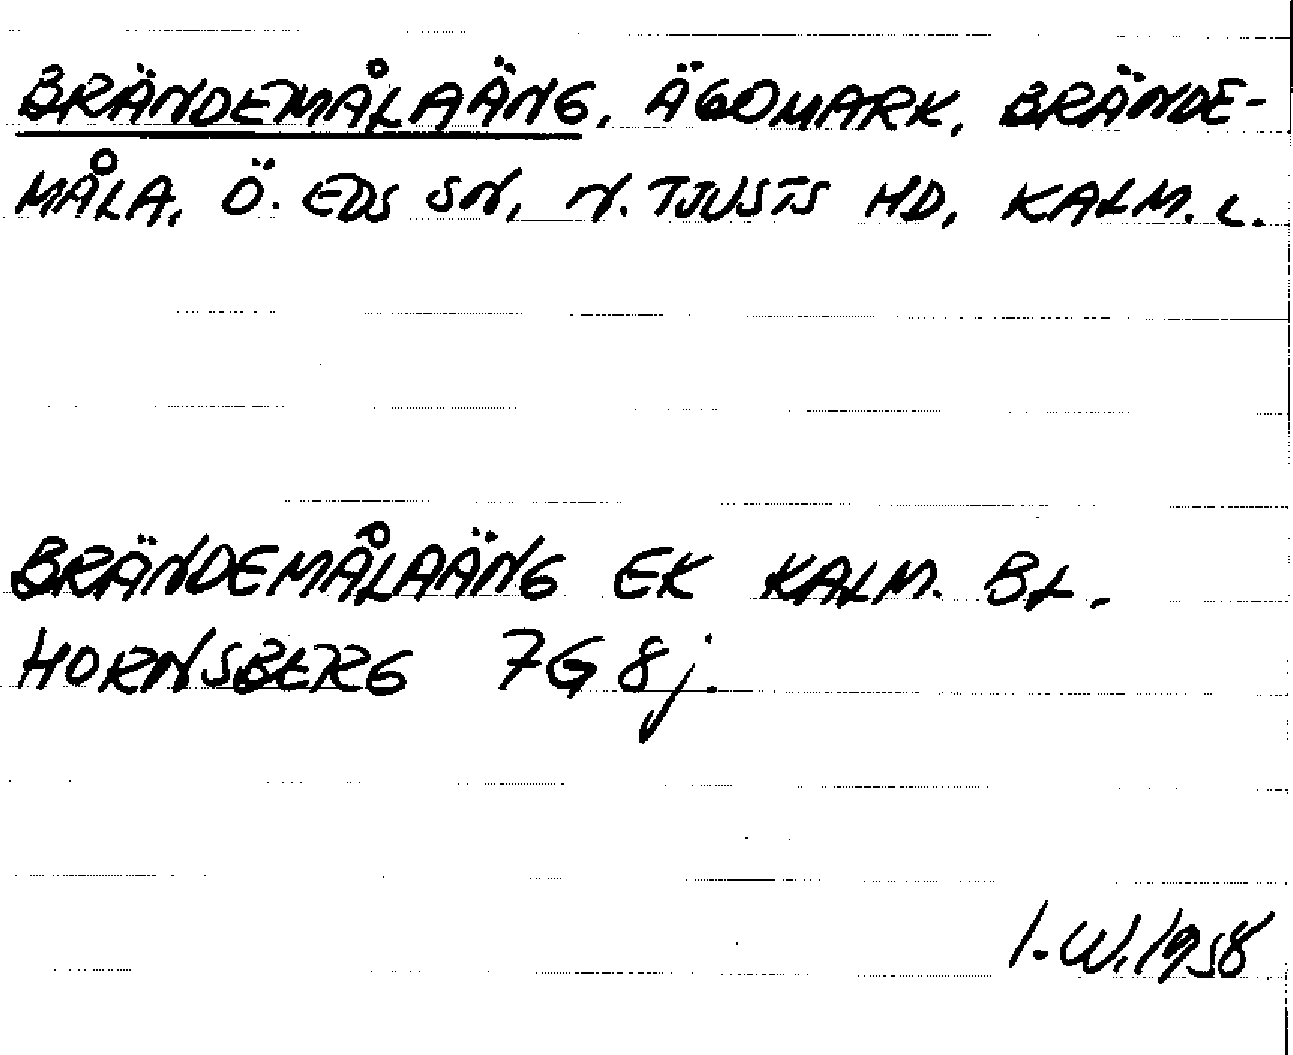 BRÄNDEMÅLAÄNG, ÄGOMARK, BRÄNDE-
MÅLA, Ö. EDS SN, N. TJUSTS HD, KALM. L.
BRÄNDEMÅLAÄNG EK KALM. BL.
HORNSBERG 7G 8j.
I.W. 1958